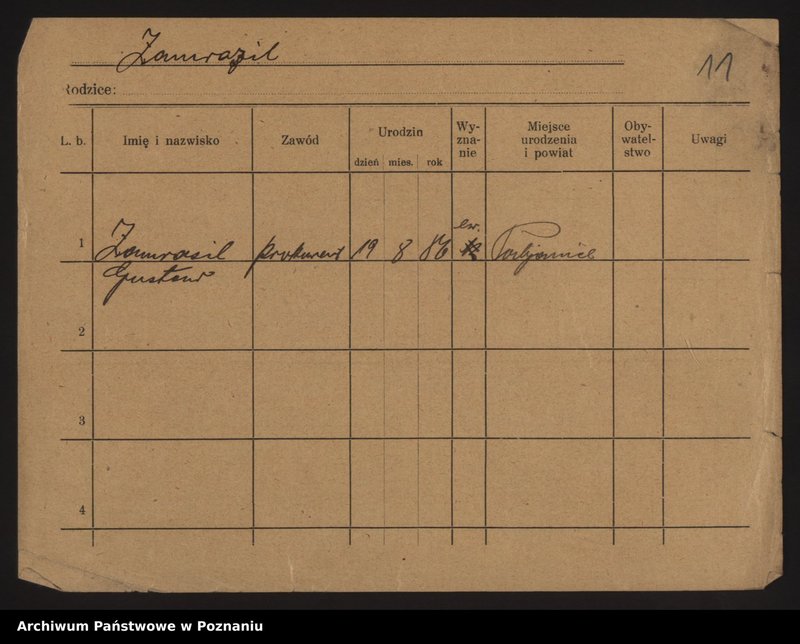 Zamrazil
11
Rodzice:
L. b. Imię i nazwisko Zawód Urodzin dzień mies. rok Wy-zna-nie Miejsce urodzenia i powiat Oby-watel-stwo Uwagi
ew.
1 Zamrasil prokurent 19 8 86 Pabjanice
Gustaw
2
3
4
Archiwum Państwowe w Poznaniu